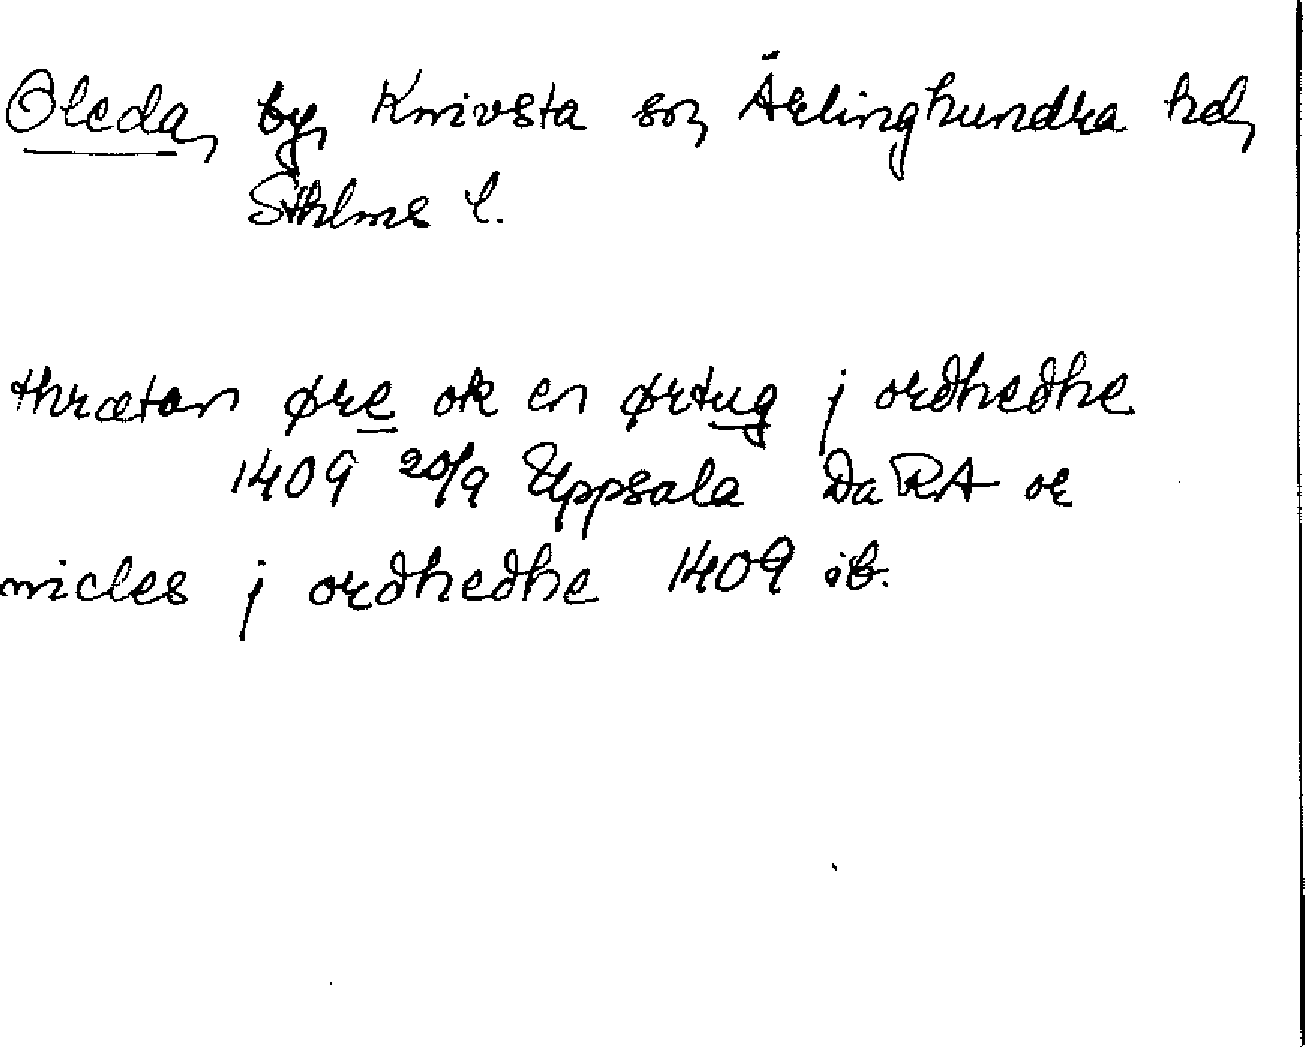 Oleda, by, Knivsta sn, Ärlinghundra hd,
Sthlms l.
thrætan øre ok en ørtug j ordhedhe
1409 20/9 Uppsala Da RA or
nicles j ordhedhe 1409 ib.